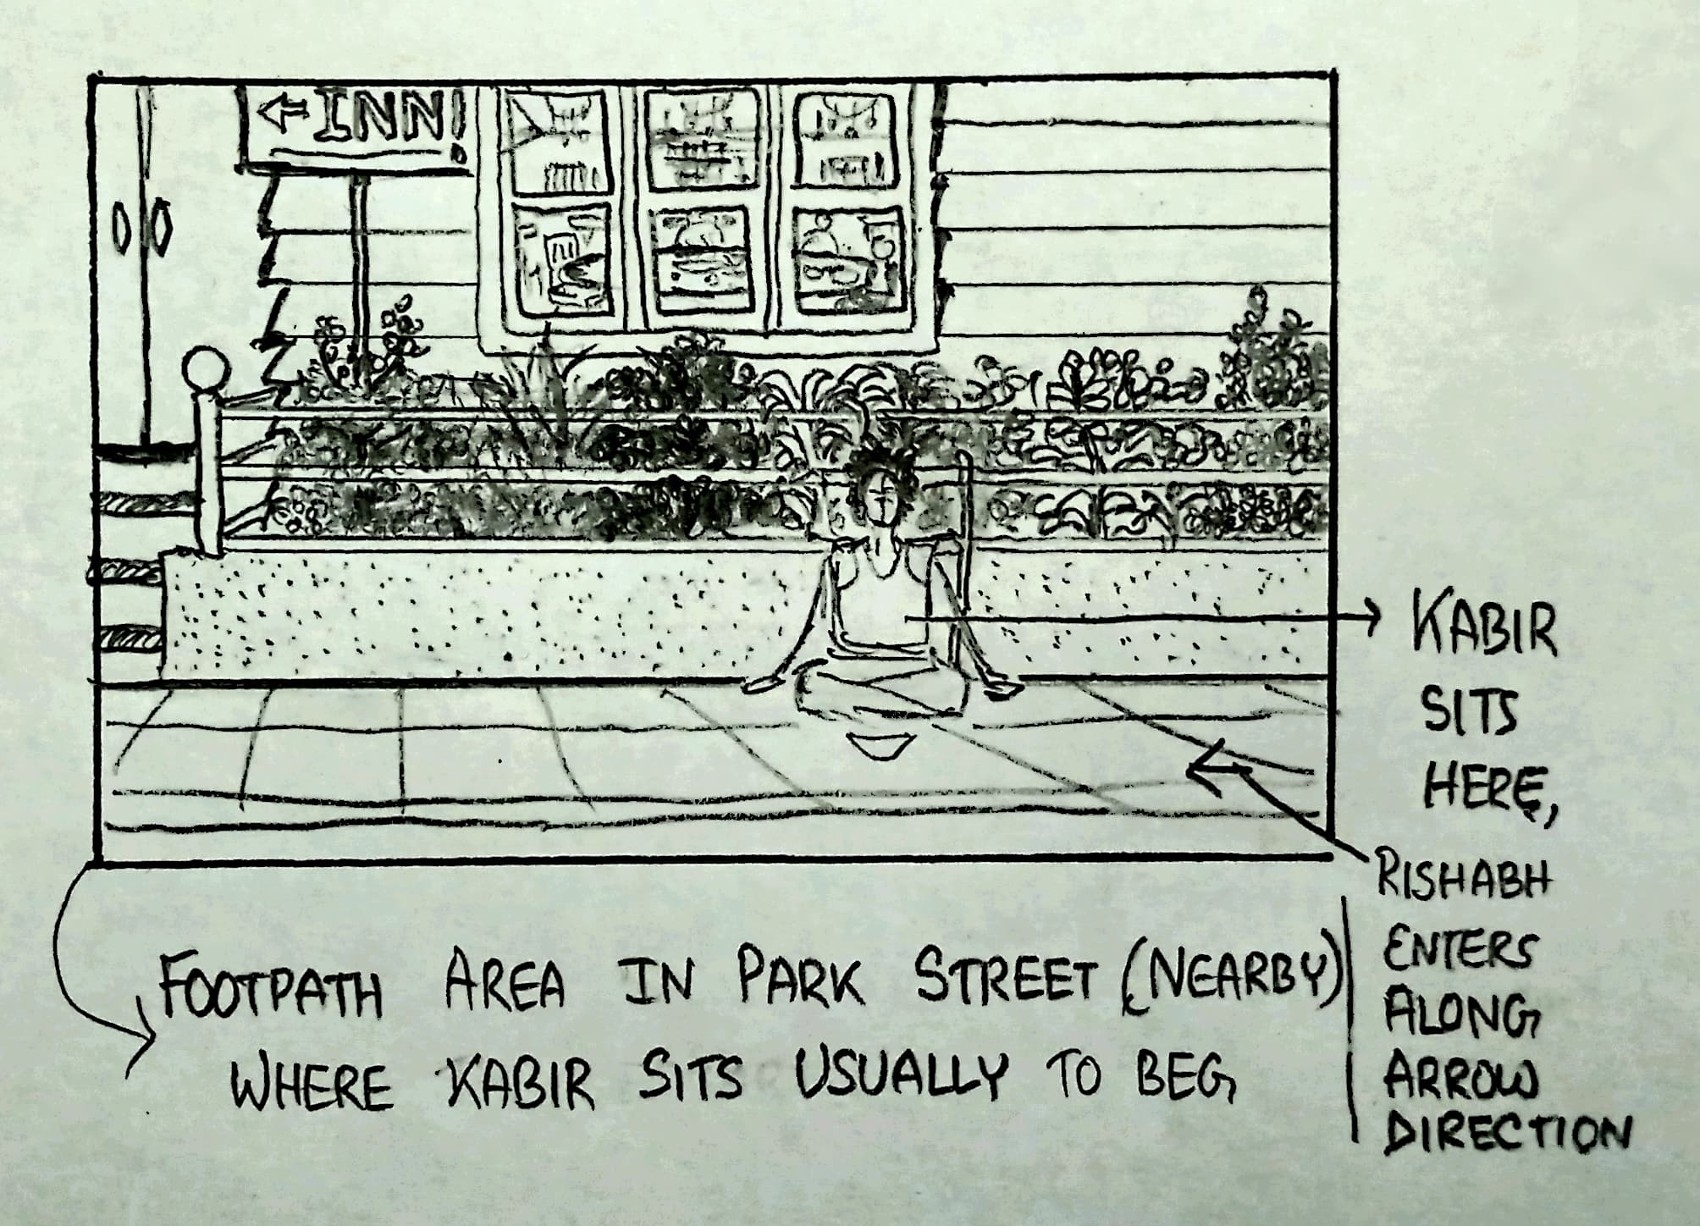 ←INN!
KABIR
SITS
HERE,
RISHABH
ENTERS
ALONG
ARROW
DIRECTION
FOOTPATH AREA IN PARK STREET (NEARBY)
WHERE KABIR SITS USUALLY TO BEG